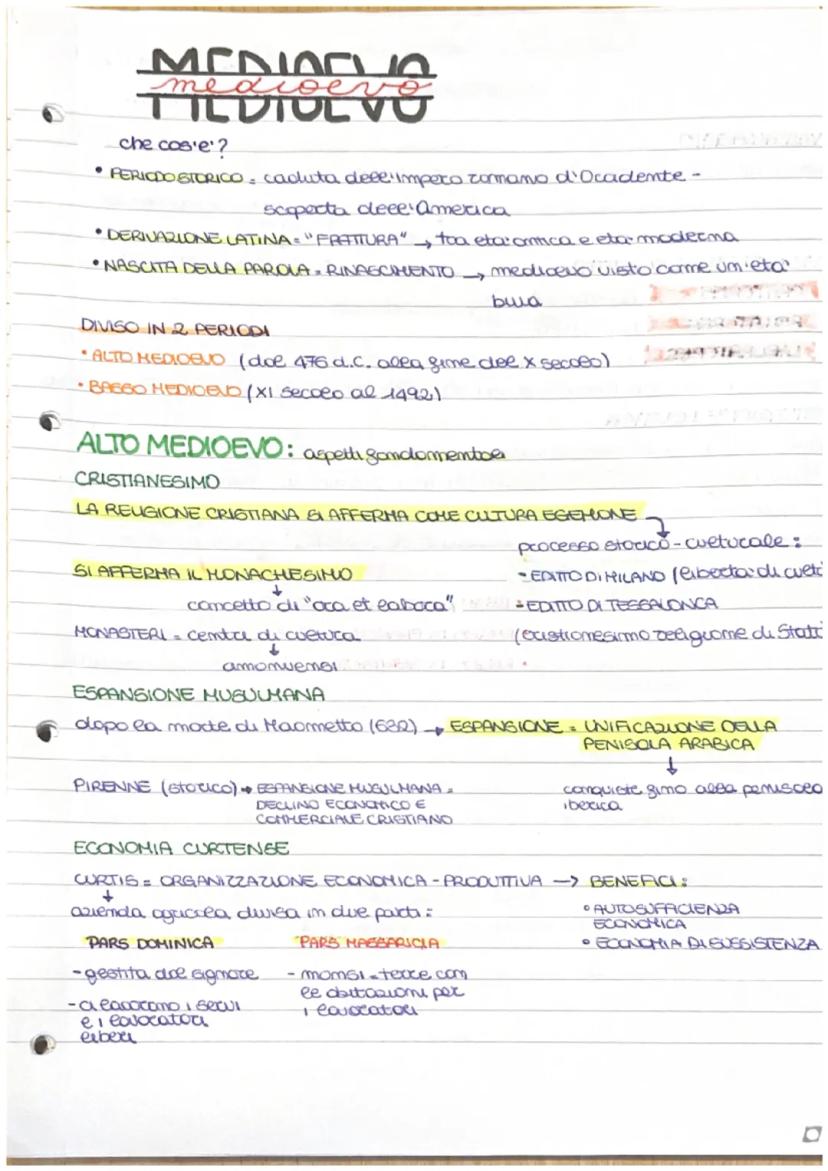 MEDIOEVO
medioevo
che cos'e'?
• PERIODO STORICO = caduta dell'impero romano d'Occidente -
scoperta dell'America
• DERIVAZIONE LATINA = "FRATTURA" → tra eta' antica e eta' moderna
• NASCITA DELLA PAROLA = RINASCIMENTO → medioevo visto come un'eta'
buia
DIVISO IN 2 PERIODI
• ALTO MEDIOEVO (dal 476 d.C. alla fine del X secolo)
• BASSO MEDIOEVO (XI secolo al 1492)
ALTO MEDIOEVO: aspetti fondamentali
CRISTIANESIMO
LA RELIGIONE CRISTIANA SI AFFERMA COME CULTURA EGEMONE
processo storico-culturale:
SI AFFERMA IL MONACHESIMO
- EDITTO DI MILANO (liberta' di cult
↓
concetto di "ora et labora"
- EDITTO DI TESSALONICA
MONASTERI = centri di cultura
(cristianesimo religione di Stat
↓
amanuensi
ESPANSIONE MUSULMANA
dopo la morte di Maometto (632) → ESPANSIONE = UNIFICAZIONE DELLA
PENISOLA ARABICA
↓
PIRENNE (storico) → ESPANSIONE MUSULMANA =
DECLINO ECONOMICO E
COMMERCIALE CRISTIANO
conquiste fino alla penisola
iberica
ECONOMIA CURTENSE
CURTIS = ORGANIZZAZIONE ECONOMICA - PRODUTTIVA → BENEFICI:
↓
azienda agricola divisa in due parti:
• AUTOSUFFICIENZA
ECONOMICA
• ECONOMIA DI SUSSISTENZA
PARS DOMINICA
- gestita dal signore
- ci lavorano i servi
e i lavoratori
liberi
PARS MASSARICIA
- mansi = terre con
le abitazioni per
i lavoratori